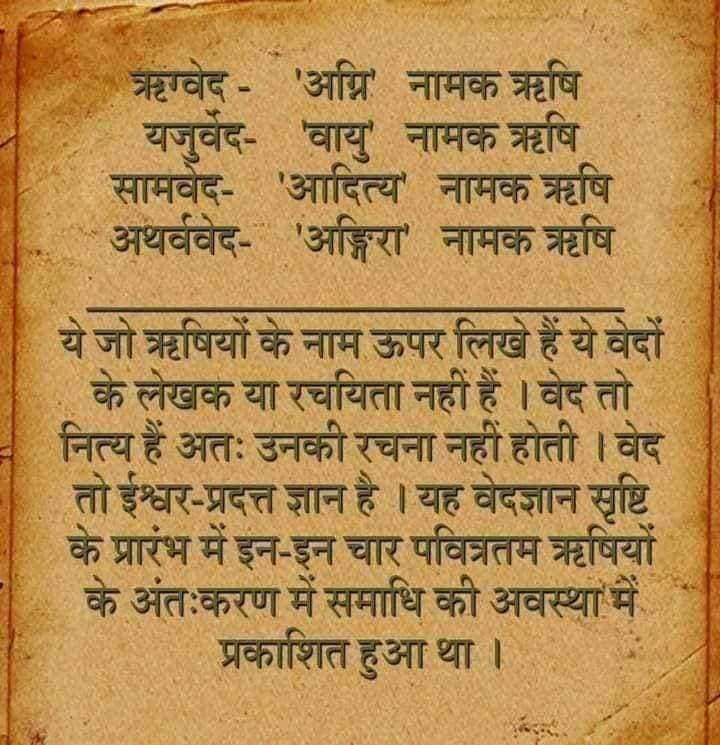 ऋग्वेद - 'अग्नि' नामक ऋषि
यजुर्वेद- 'वायु' नामक ऋषि
सामवेद- 'आदित्य' नामक ऋषि
अथर्ववेद- 'अङ्गिरा' नामक ऋषि
ये जो ऋषियों के नाम ऊपर लिखे हैं ये वेदों
के लेखक या रचयिता नहीं हैं । वेद तो
नित्य हैं अतः उनकी रचना नहीं होती । वेद
तो ईश्वर-प्रदत्त ज्ञान है । यह वेदज्ञान सृष्टि
के प्रारंभ में इन-इन चार पवित्रतम ऋषियों
के अंतःकरण में समाधि की अवस्था में
प्रकाशित हुआ था ।